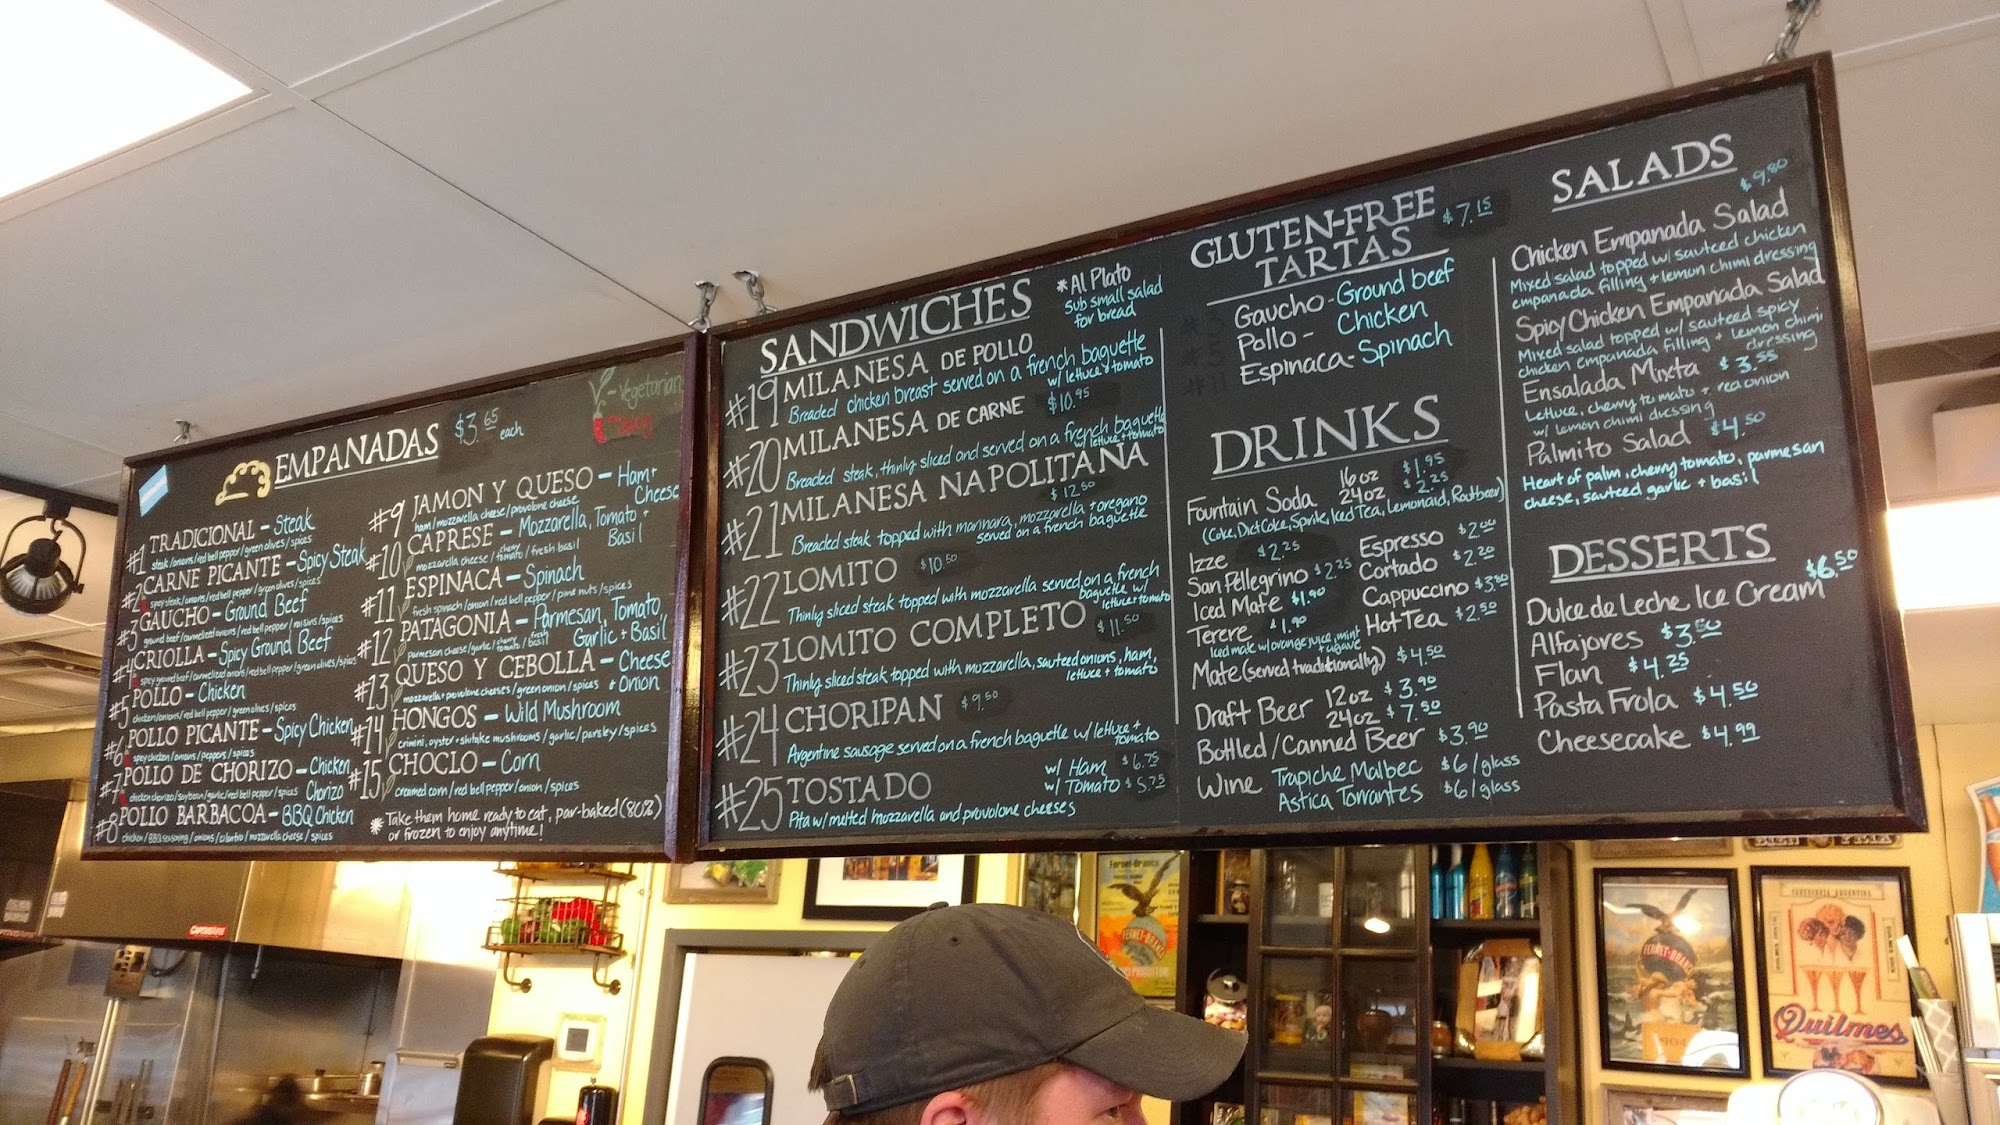 EMPANADAS $3.65 each
- Vegetarian
#1 TRADICIONAL - Steak
steak/onions/red bell pepper/green olives/spices
#2 CARNE PICANTE - Spicy Steak
spicy steak/onions/red bell pepper/green olives/spices
#3 GAUCHO - Ground Beef
ground beef/carmelized onions/red bell pepper/raisins/spices
#4 CRIOLLA - Spicy Ground Beef
spicy ground beef/carmelized onions/red bell pepper/green olives/spices
#5 POLLO - Chicken
chicken/onions/red bell pepper/green olives/spices
#6 POLLO PICANTE - Spicy Chicken
spicy chicken/onions/peppers/spices
#7 POLLO DE CHORIZO - Chicken Chorizo
chicken chorizo/soybean/garlic/red bell pepper/spices
#8 POLLO BARBACOA - BBQ Chicken
chicken/BBQ seasoning/onions/cilantro/mozzarella cheese/spices
#9 JAMON Y QUESO - Ham + Cheese
ham/mozzarella cheese/provolone cheese
#10 CAPRESE - Mozzarella, Tomato + Basil
mozzarella cheese/cherry tomato/fresh basil
#11 ESPINACA - Spinach
fresh spinach/onion/red bell pepper/pine nuts/spices
#12 PATAGONIA - Parmesan, Tomato, Garlic + Basil
parmesan cheese/garlic/cherry tomato/fresh basil
#13 QUESO Y CEBOLLA - Cheese + Onion
mozzarella + provolone cheeses/green onion/spices
#14 HONGOS - Wild Mushroom
crimini, oyster + shitake mushrooms/garlic/parsley/spices
#15 CHOCLO - Corn
creamed corn/red bell pepper/onion/spices
* Take them home ready to eat, par-baked (80%)
or frozen to enjoy anytime!
SANDWICHES
*Al Plato
sub small salad
for bread
#19 MILANESA DE POLLO
Breaded chicken breast served on a french baguette
w/ lettuce + tomato
#20 MILANESA DE CARNE $10.95
Breaded steak, thinly sliced and served on a french baguette
w/ lettuce + tomato
#21 MILANESA NAPOLITANA
$12.50
Breaded steak topped with marinara, mozzarella + oregano
served on a french baguette
#22 LOMITO $10.50
Thinly sliced steak topped with mozzarella served on a french
baguette w/ lettuce + tomato
#23 LOMITO COMPLETO $11.50
Thinly sliced steak topped with mozzarella, sauteed onions, ham,
lettuce + tomato
#24 CHORIPAN $9.50
Argentine sausage served on a french baguette w/ lettuce +
tomato
#25 TOSTADO w/ Ham $6.75
w/ Tomato $5.75
Pita w/ melted mozzarella and provolone cheeses
GLUTEN-FREE $7.15
TARTAS
Gaucho - Ground beef
Pollo - Chicken
Espinaca - Spinach
DRINKS
Fountain Soda 16oz $1.95
24oz $2.25
(Coke, Diet Coke, Sprite, Iced Tea, Lemonaid, Rootbeer)
Izze $2.25
San Pellegrino $2.25
Iced Mate $1.90
Terere $1.90
Iced mate w/ orange juice, mint
+ agave
Espresso $2.00
Cortado $2.20
Cappuccino $3.50
Hot Tea $2.50
Mate (served traditionally) $4.50
Draft Beer 12oz $3.90
24oz $7.50
Bottled/Canned Beer $3.90
Wine Trapiche Malbec $6/glass
Astica Torrontes $6/glass
SALADS
$9.80
Chicken Empanada Salad
Mixed salad topped w/ sauteed chicken
empanada filling + lemon chimi dressing
Spicy Chicken Empanada Salad
Mixed salad topped w/ sauteed spicy
chicken empanada filling + lemon chimi
dressing
Ensalada Mixta $3.55
Lettuce, cherry tomato + red onion
w/ lemon chimi dressing
Palmito Salad $4.50
Heart of palm, cherry tomato, parmesan
cheese, sauteed garlic + basil
DESSERTS
$6.50
Dulce de Leche Ice Cream
Alfajores $3.50
Flan $4.25
Pasta Frola $4.50
Cheesecake $4.99
FERNET-BRANCA
FERNET-BRANCA
CERVECERIA ARGENTINA
Quilmes